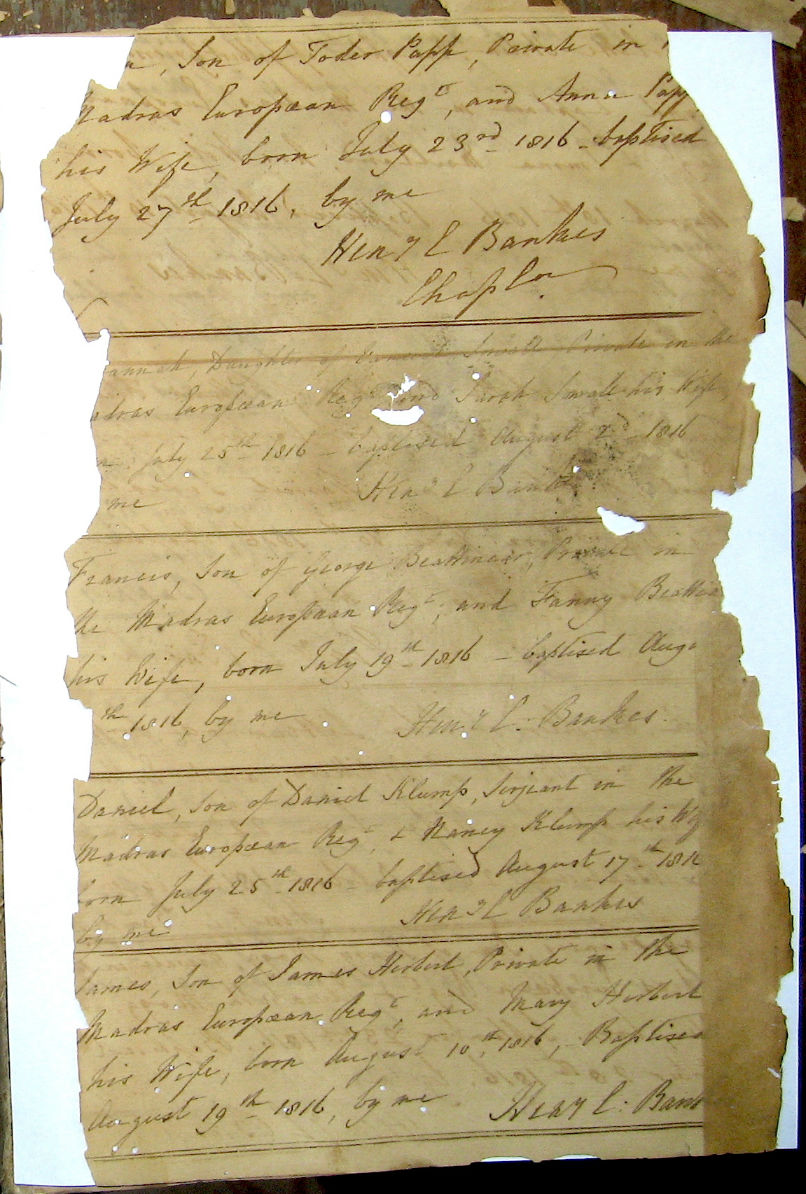 Son of Toder Papp, Private in
Madras European Regt, and Anna Papp
his Wife, born July 23rd 1816 - baptised
July 27th 1816, by me
Henry L Bankes
Chapln
annah, Daughter of Small Private in the
adras European Regt and Sarah Small his Wife,
July 25th 1816 - baptised August 2nd 1816
me Henry L Bankes
Francis, Son of George Private in
the Madras European Regt, and Fanny
his Wife, born July 19th 1816 - baptised Augu
th 1816, by me Henry L. Bankes.
Daniel, Son of Daniel Klump, Serjeant in the
Madras European Regt, & Nancy Klump his Wif
born July 25th 1816 - baptised August 17th 1816
by me Henry L Bankes
James, Son of James Herbert, Private in the
Madras European Regt, and Mary Herbert
his Wife, born August 10th, 1816, - Baptised
August 19th 1816, by me Henry L. Bank